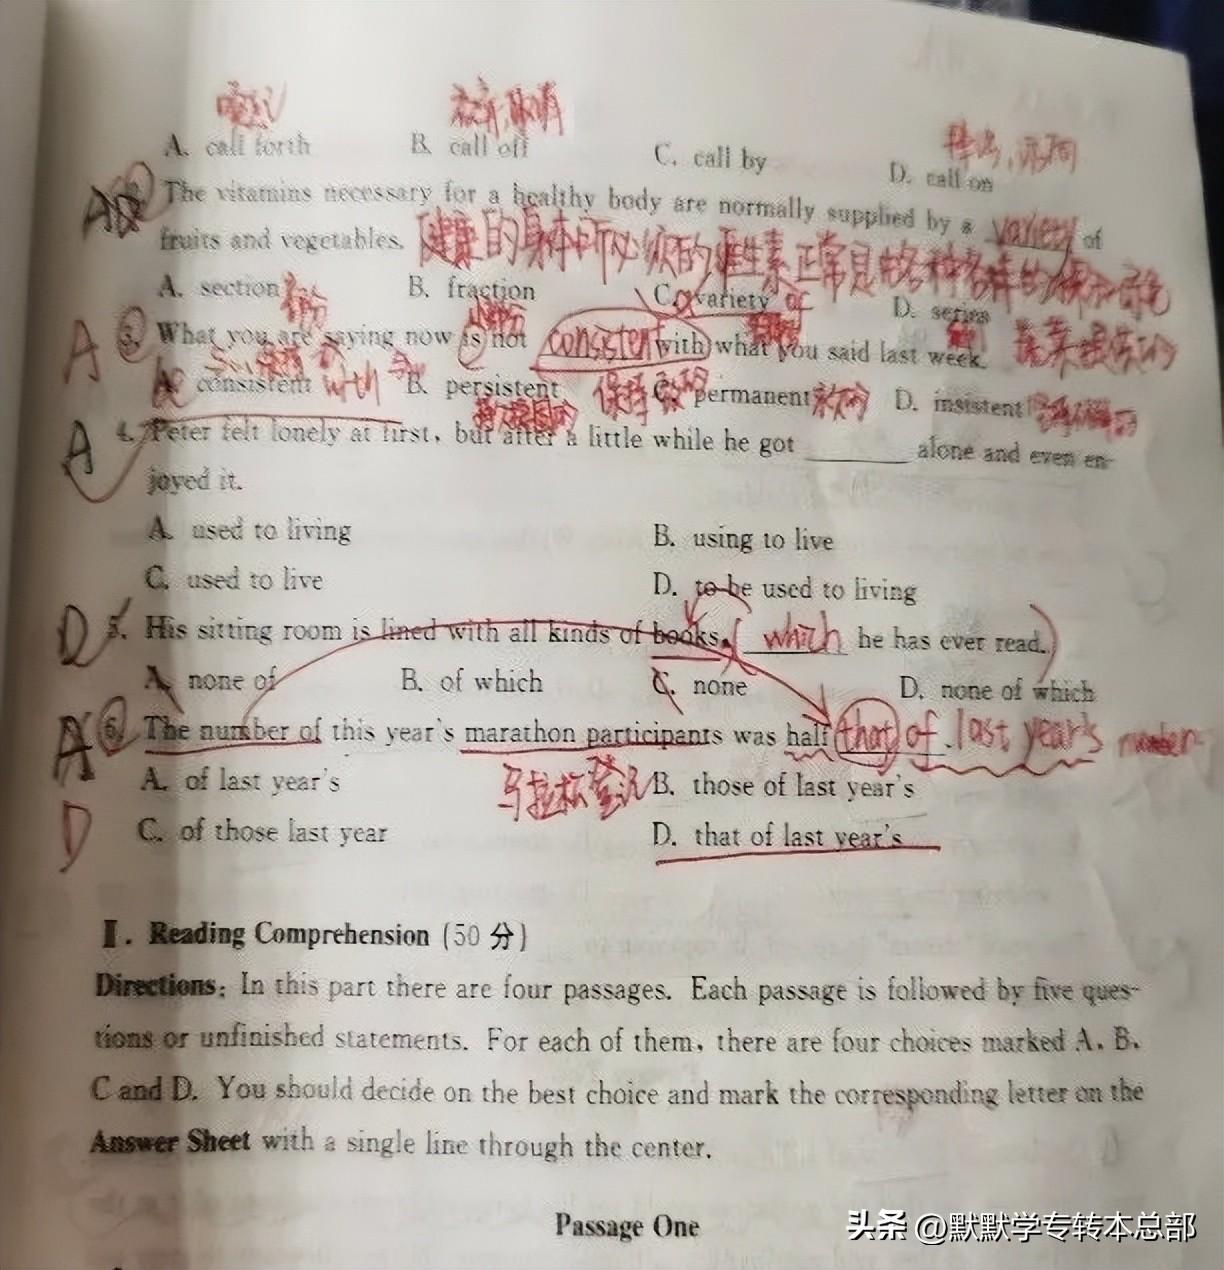 唤起
取消
A. call forth B. call off C. call by D. call on
2. The vitamins necessary for a healthy body are normally supplied by a variety of
fruits and vegetables. 健康的身体所必须的维生素正常是由各种各样的
A. section B. fraction C. variety of D. series
部分
A 3. What you are saying now is not consistent with what you said last week. 蔬菜提供的
A. consistent with B. persistent C. permanent D. insistent
A 4. Peter felt lonely at first, but after a little while he got ______ alone and even en-
joyed it.
A. used to living B. using to live
C. used to live D. to be used to living
D 5. His sitting room is lined with all kinds of books, ( which he has ever read. )
A. none of B. of which C. none D. none of which
A 6. The number of this year's marathon participants was half that of last year's number
A. of last year's B. those of last year's
马拉松
D C. of those last year D. that of last year's
Ⅱ. Reading Comprehension (50 分)
Directions: In this part there are four passages. Each passage is followed by five ques-
tions or unfinished statements. For each of them, there are four choices marked A, B,
C and D. You should decide on the best choice and mark the corresponding letter on the
Answer Sheet with a single line through the center.
Passage One
头条 @默默学专转本总部